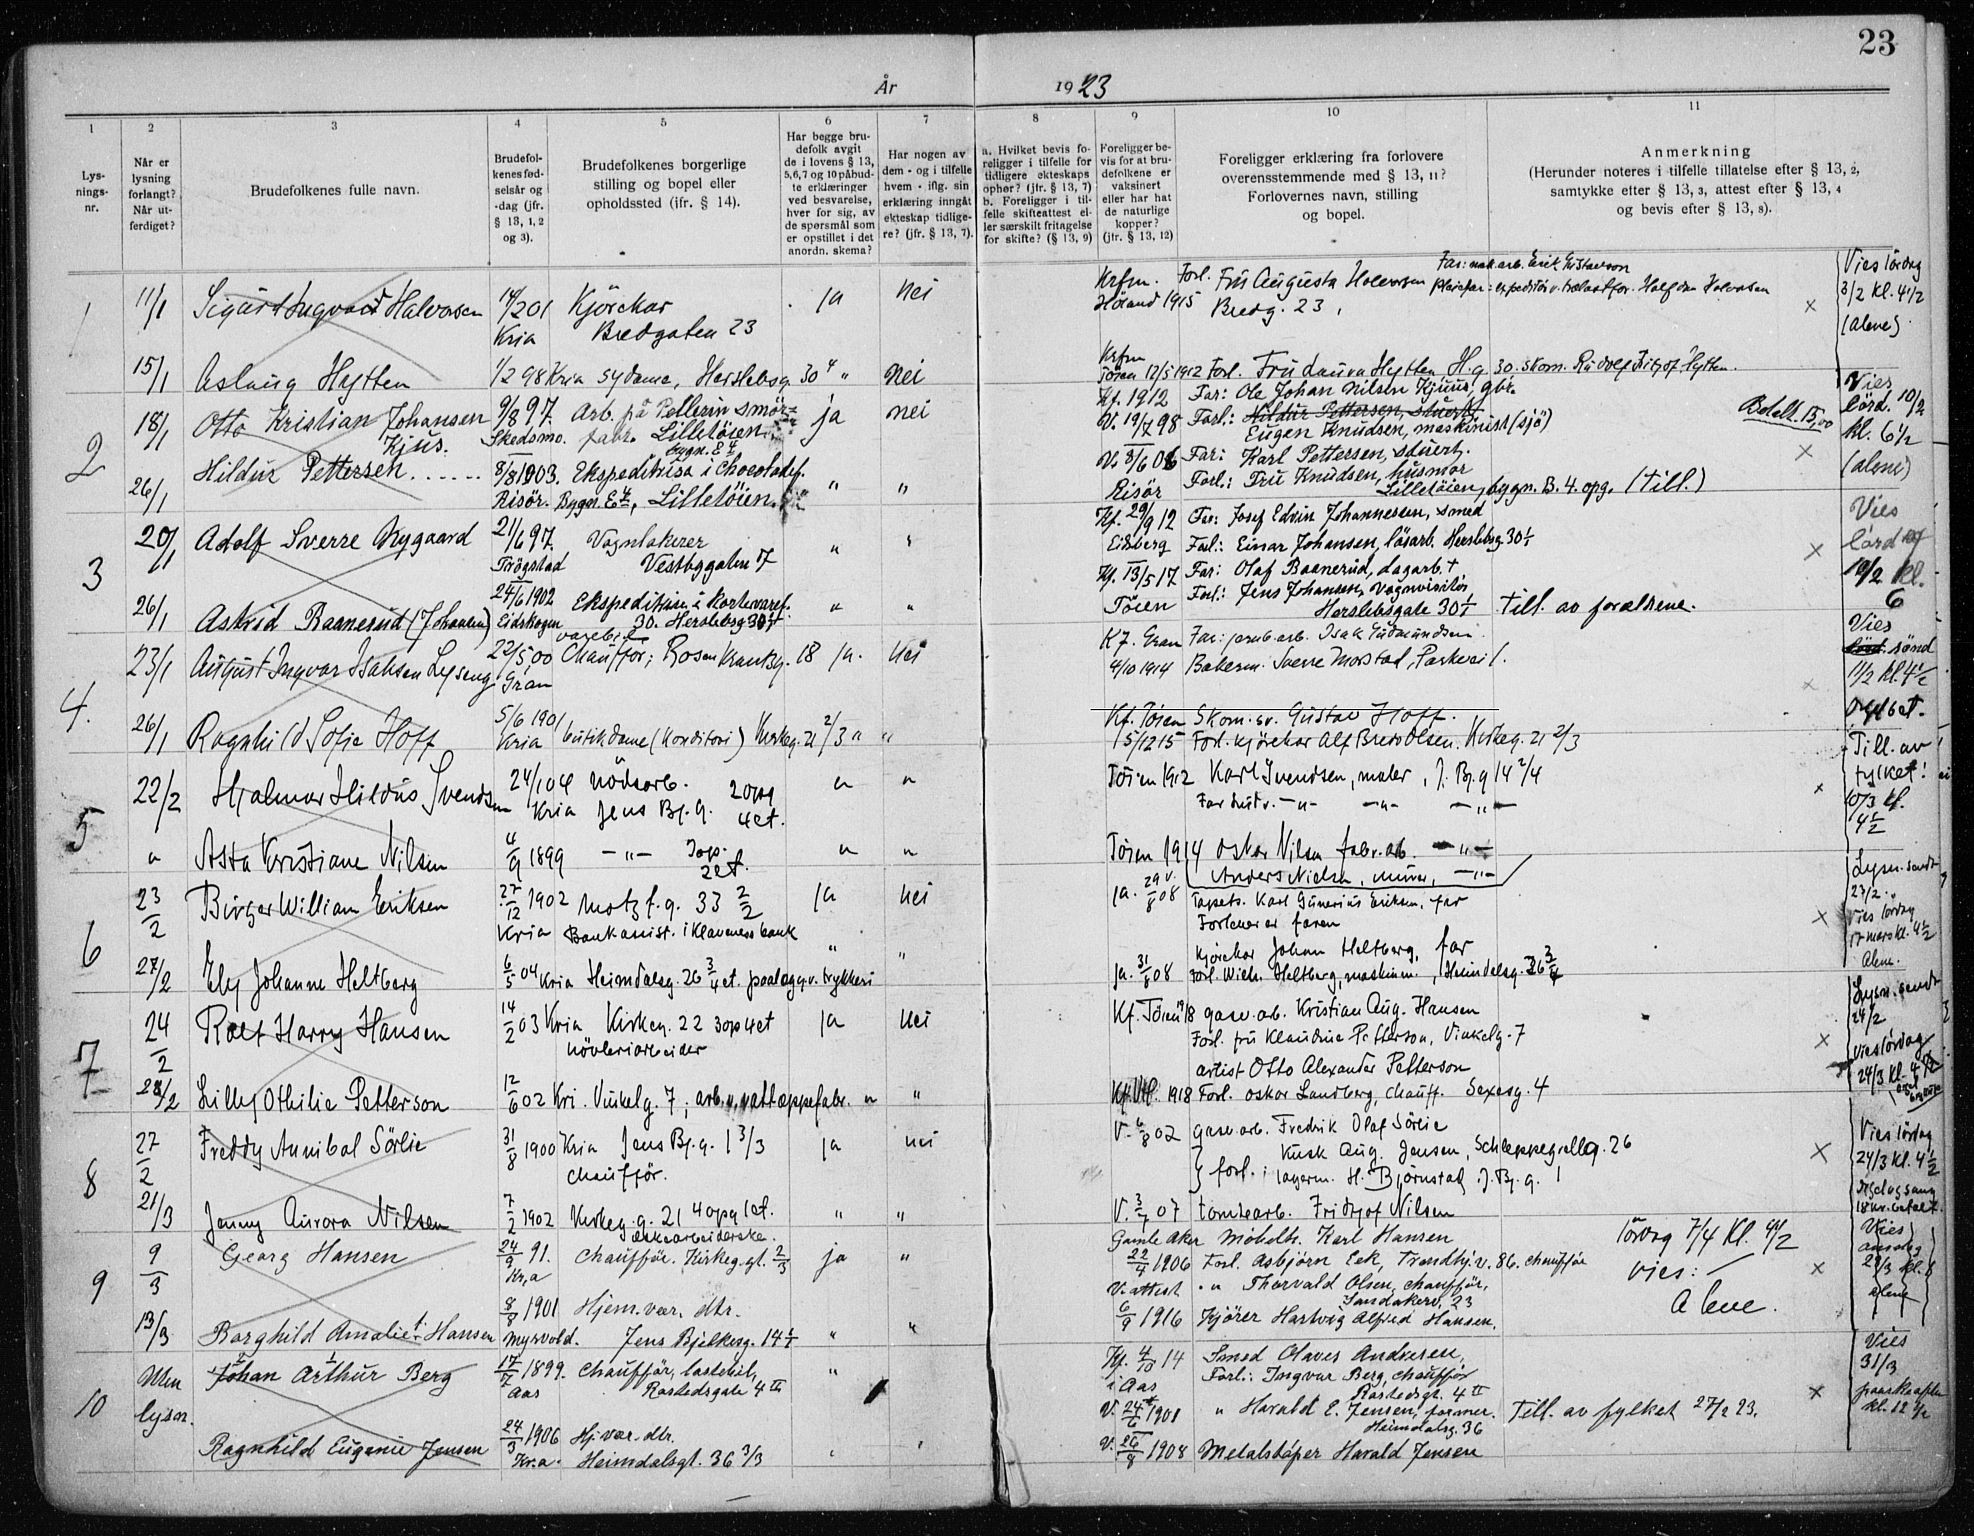 23
År 1923
1 2 3 4 5 6 7 8 9 10 11
Lys-
nings-
nr.
Når er
lysning
forlangt?
Når ut-
ferdiget?
Brudefolkenes fulle navn.
Brudefol-
kenes fød-
selsår og
-dag (jfr.
§ 13, 1, 2
og 3).
Brudefolkenes borgerlige
stilling og bopel eller
opholdssted (ifr. § 14).
Har begge bru-
defolk avgit
de i lovens § 13,
5,6,7 og 10 påbud-
te erklæringer
ved besvarelse,
hver for sig, av
de spørsmål som
er opstillet i det
anordn. skema?
Har nogen av
dem - og i tilfelle
hvem - iflg. sin
erklæring inngåt
ekteskap tidlige-
re? (jfr. § 13, 7).
a. Hvilket bevis fo-
religger i tilfelle for
tidligere ekteskaps
ophør? (jfr. § 13, 7)
b. Foreligger i til-
felle skifteattest el-
ler særskilt fritagelse
for skifte? (§ 13, 9)
Foreligger be-
vis for at bru-
defolkene er
vaksinert
eller har hat
de naturlige
kopper?
(jfr. § 13, 12)
Foreligger erklæring fra forlovere
overensstemmende med § 13, 11?
Forlovernes navn, stilling
og bopel.
Anmerkning
(Herunder noteres i tilfelle tillatelse efter § 13, 2,
samtykke efter § 13, 3, attest efter § 13, 4
og bevis efter § 13, 8).
1 11/1 Sigurd Ingvart Halvorsen 14/2 01 Kjörekar ja nei Krfm. Forl. Fru Augusta Halvorsen Far: Erik Gustavson
Kria Bredgaten 23 Höland 1915 Bredg. 23, Halfdan Halvorsen
Vies lördag
3/2 kl. 4 1/2
(alene)
15/1 Aslaug Hytten 1/2 98 Kria sydame, Herslebsg. 30 4 " nei Krfm Tøien 12/5 1912 Forl. Fru Laura Hytten H.g. 30. Skom. Rudolf Fritjof Hytten.
2 18/1 Otto Kristian Johansen 9/8 97. Arb. på Pellerin smör- ja nei Kf. 1912 Far: Ole Johan Nilsen Kjuus, gbr.
Kjus. Skedsmo. fabr. Lilletöien V. 19/7 98 Forl.: Hildur Pettersen, stuert
bygn. E 4 Eugen Knudsen, maskinist (sjö) Betalt 15,00
26/1 Hildur Pettersen 8/8 1903. Ekspeditrise i Chocoladef. " " V. 8/6 06 Far: Karl Pettersen, stuert.
Risör. Bygn. E 4, Lilletöien. Risör Forl.: Fru Knudsen, husmor
Lilletöien, bygn. B. 4. opg. (Till.)
Vies
lörd. 10/2
kl. 6 1/2
(alene)
3 20/1 Adolf Sverre Nygaard 21/6 97. Vognlakerer " " Kf. 29/9 12 Far: Josef Edvin Johannesen, smed
Trögstad Vestbygaten 7 Eidsberg Forl.: Einar Johansen, lösarb. Herslebsg. 30 I
26/1 Astrid Baanerud (Johansen) 24/6 1902 Ekspeditrise i kortevaref. " " Kf. 13/5 17 Far: Olaf Baanerud, dagarb. †
Eidskogen 30. Herslebsg. 30 I Töien Forl.: Jens Johansen, Vognvisitör
Herslebsgate 30 I Till. av forældrene.
Vies
lördag
10/2 kl.
6
4. 23/1 August Ingvar Isaksen Lyseng 22/5 00 Chauffør; Rosenkrantzg. 18 ja. nei Kf. Gran Far: Isak Gudmundsen
Gran 4/10 1914 Bakerm. Sverre Morstad, Parkvei 1.
Vies
lörd. sönd
11/2 kl. 4 1/2
26/1 Ragnhild Sofie Hoff 5/6 1901 butikdame (Konditori) Kirkeg. 21 2/3 " " Kf. Tøien Skom. sv. Gustav Hoff.
Kria 5/12 15 Forl. kjörekar Alf Bredo Olsen. Kirkeg. 21 2/3
5 22/2 Hjalmar Hildus Svendsen 24/10 04 nödsarb. 2 opg " " Tøien 1912 Karl Svendsen, maler, J. Bj. g 14 2/4
Kria Jens Bj. g. 4 et.
" Asta Kristiane Nilsen 4/9 1899 - " - 2 et. " " Tøien 1914 Oskar Nilsen fabr. arb. - " -
Anders Nielsen, murer, - " -
Till. av
fylket!
10/3 kl.
4 1/2
6 23/2 Birger William Eriksen 27/12 1902 Motzf. g. 33 2/2 ja nei ja. 29/8 08 Tapets. Karl Gunerius Eriksen, far
Kria Bankassist. i Klaveness bank Forlover er faren
27/2 Elly Johanne Heltberg 6/5 04 Kria Heimdalsg. 26 3/4 et. v. trykkeri " " ja. 31/8 08 Kjörekar Johan Heltberg, far
Forl. Wilh. Heltberg, maskinm., Heimdalsg. 26 3/4
Lysn. sendt
27/2.
Vies lördag
17 mars kl. 4 1/2
Alene.
7 24/2 Rolf Harry Hansen 14/2 03 Kria Kirkeg. 22 3 opg 4 et ja nei Kf. Tøien 18 gasv. arb. Kristian Aug. Hansen
hövleriarbeider Forl. fru Klaudine Petterson, Vinkelg. 7
artist Otto Alexander Petterson
28/2 Lilly Othilie Petterson 12/6 02 Kri. Vinkelg. 7, arb. v. vattæppefabr. " " 1918 Forl. Oskar Sandberg, chauff. Sexesg. 4
Lysn. sendt
24/2
Vies lördag
24/3 kl. 4 1/2
8 27/2 Freddy Annibal Sörlie 31/8 1900 Kria Jens Bj. g. 1 3/3 ja nei V. 6/8 02 gasv. arb. Fredrik Olaf Sörlie
Chauffør. Kusk Aug. Jensen, Schleppegrellg. 26
forl.: lagerm. H. Björnstad J. Bj. g. 1
21/3 Jenny Aurora Nilsen 7/2 1902 Kirkeg. g. 21 4 opg 1 et. " " V. 3/7 07 tomtearb. Fridtjof Nilsen
eskearbeiderske.
Vies lördag
24/3 kl. 4 1/2
Orgel og sang
18 kr. betalt.
9 9/3 Georg Hansen 24/9 91. Chauffør. Kirkeg. gt. 2/3 ja " Gamle Aker Möbelh. Karl Hansen
Kr.a 22/4 1906 Forl. Asbjörn Eek, Trondhj. v. 86. chauffør
V. attest " Thorvald Olsen, chauffør,
Sandakerv. 23
13/3 Borghild Amalie Hansen 8/8 1901 Hjem. vær. dtr. " " 6/9 1916 Kjörer Hartvig Alfred Hansen.
Myrvold. Jens Bjelkesg. 14 I
lördag 7/4 Kl. 4 1/2
vies: -
Alene.
Vies
10 Uten Johan Arthur Berg 17/7 1899. Chauffør, lastebil, " Kf. 4/10 14 Smed Olaves Andersen,
lysn. Aas Rostedsgate 4 III i Aas Forl.: Ingvar Berg, chauffør
Rostedsgt. 4 II
V. 24/6 1901 " Harald E. Jensen, former. Till. av fylket 27/2 23.
Heimdalsg. 36
Ragnhild Eugenie Jensen 24/3 1906 Hj. vær. dtr. " " V. 26/8 1908 Metalstöper Harald Jensen
Kr.a. Heimdalsgt. 36 3/3
Vies
31/3
paaskeaften
kl. 12 1/2